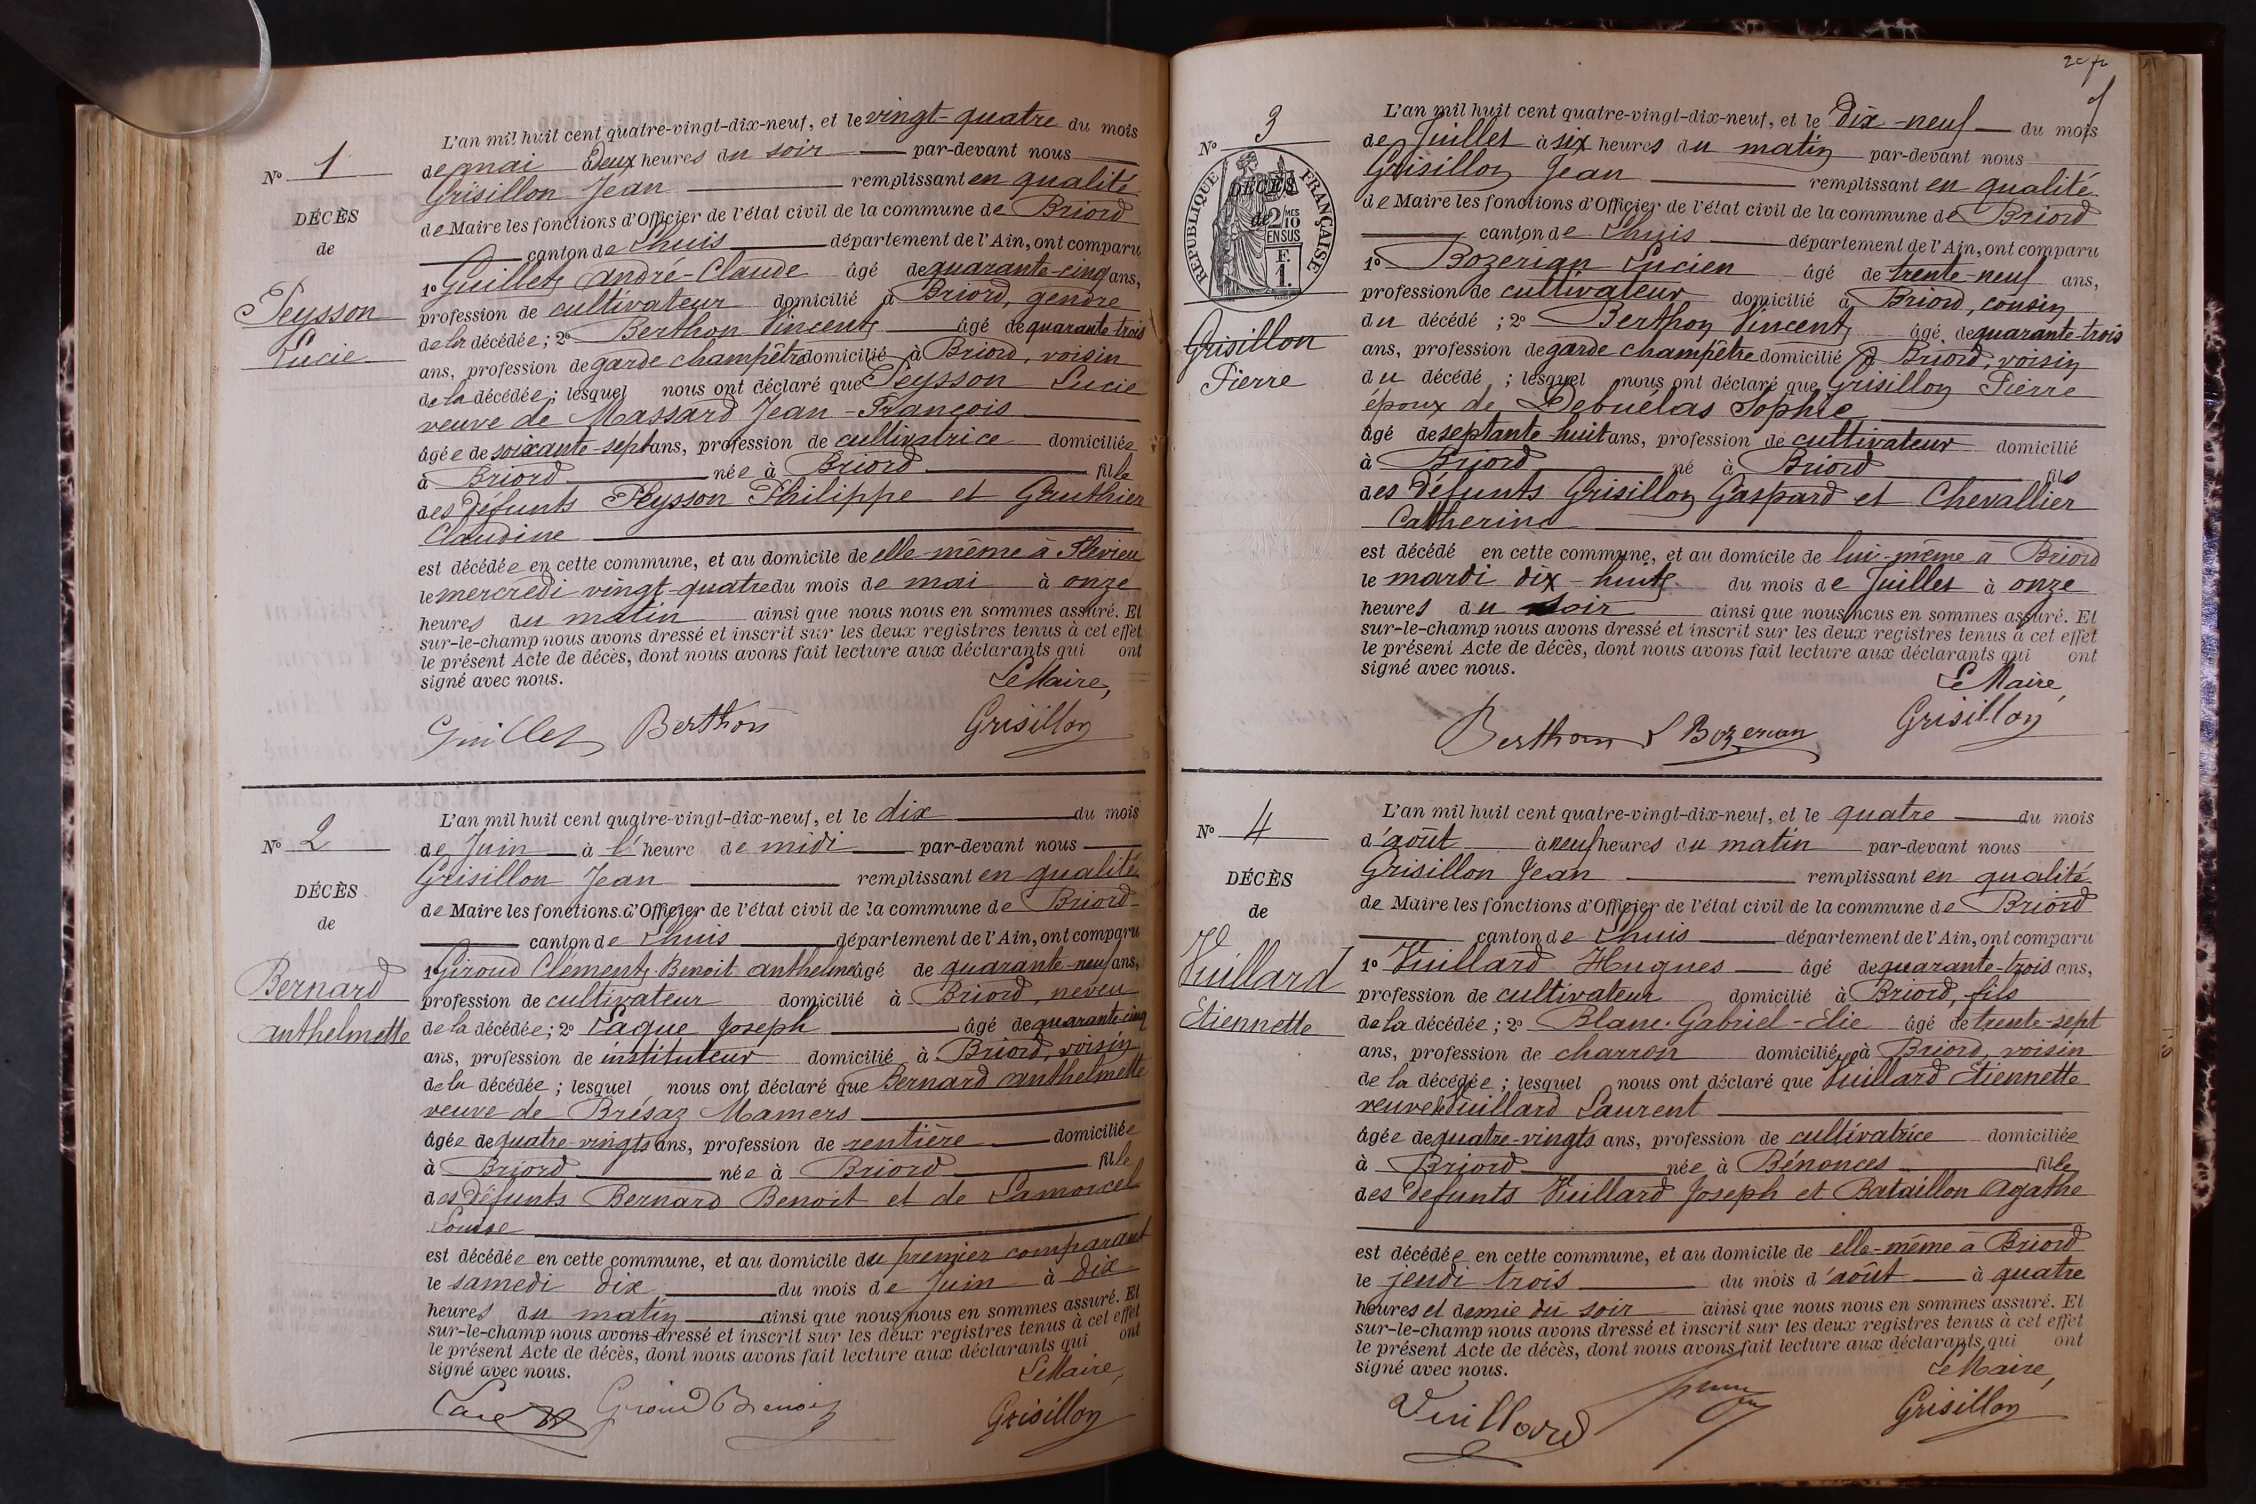 N° 1
DÉCÈS
de
Peysson
Lucie
L'an mil huit cent quatre-vingt-dix-neuf, et le vingt-quatre du mois
de mai à Deux heures du soir par-devant nous
Grisillon Jean remplissant en qualité
de Maire les fonctions d'Officier de l'état civil de la commune de Briord
canton de Lhuis département de l'Ain, ont comparu
1° Guillet André-Claude âgé de quarante-cinq ans,
profession de cultivateur domicilié à Briord, gendre
de la décédée ; 2° Berthon Vincent âgé de quarante-trois
ans, profession de garde champêtre domicilié à Briord, voisin
de la décédée ; lesquel nous ont déclaré que Peysson Lucie
veuve de Massard Jean-François
âgée de soixante-sept ans, profession de cultivatrice domiciliée
à Briord née à Briord fille
des Défunts Peysson Philippe et Gauthier
Claudine
est décédée en cette commune, et au domicile de elle-même à Flévieu
le mercredi vingt-quatre du mois de mai à onze
heures du matin ainsi que nous nous en sommes assuré. Et
sur-le-champ nous avons dressé et inscrit sur les deux registres tenus à cet effet
le présent Acte de décès, dont nous avons fait lecture aux déclarants qui ont
signé avec nous.
Le Maire,
Guillet Berthon Grisillon
N° 2
DÉCÈS
de
Bernard
anthelmette
L'an mil huit cent quatre-vingt-dix-neuf, et le dix du mois
de Juin à l'heure de midi par-devant nous
Grisillon Jean remplissant en qualité
de Maire les fonctions d'Officier de l'état civil de la commune de Briord
canton de Lhuis département de l'Ain, ont comparu
1° Giroud Clément Benoit anthelme âgé de quarante-neuf ans,
profession de cultivateur domicilié à Briord, neveu
de la décédée ; 2° Caque Joseph âgé de quarante-cinq
ans, profession de instituteur domicilié à Briord, voisin
de la décédée ; lesquel nous ont déclaré que Bernard anthelmette
veuve de Brésaz Mamers
âgée de quatre-vingts ans, profession de rentière domiciliée
à Briord née à Briord fille
des Défunts Bernard Benoit et de Lamorcel
Louise
est décédée en cette commune, et au domicile du premier comparant
le samedi dix du mois de Juin à dix
heures du matin ainsi que nous nous en sommes assuré. Et
sur-le-champ nous avons dressé et inscrit sur les deux registres tenus à cet effet
le présent Acte de décès, dont nous avons fait lecture aux déclarants qui ont
signé avec nous.
Le Maire,
Giroud Benoit Grisillon
N° 3
RÉPUBLIQUE FRANÇAISE
DÉCÈS
de
2/10
EN SUS
F.
1.
Grisillon
Pierre
L'an mil huit cent quatre-vingt-dix-neuf, et le Dix-neuf du mois
de Juillet à six heures du matin par-devant nous
Grisillon Jean remplissant en qualité
de Maire les fonctions d'Officier de l'état civil de la commune de Briord
canton de Lhuis département de l'Ain, ont comparu
1° Bozerian Lucien âgé de trente-neuf ans,
profession de cultivateur domicilié à Briord, cousin
du décédé ; 2° Berthon Vincent âgé de quarante-trois
ans, profession de garde champêtre domicilié à Briord, voisin
du décédé ; lesquel nous ont déclaré que Grisillon Pierre
époux de Debuélas Sophie
âgé de septante-huit ans, profession de cultivateur domicilié
à Briord né à Briord fils
des Défunts Grisillon Gaspard et Chevallier
Catherine
est décédé en cette commune, et au domicile de lui-même à Briord
le mardi dix-huit du mois de Juillet à onze
heures du soir ainsi que nous nous en sommes assuré. Et
sur-le-champ nous avons dressé et inscrit sur les deux registres tenus à cet effet
le présent Acte de décès, dont nous avons fait lecture aux déclarants qui ont
signé avec nous.
Le Maire,
Berthon L Bozerian Grisillon
N° 4
DÉCÈS
de
Vuillard
Etiennette
L'an mil huit cent quatre-vingt-dix-neuf, et le quatre du mois
d'août à neuf heures du matin par-devant nous
Grisillon Jean remplissant en qualité
de Maire les fonctions d'Officier de l'état civil de la commune de Briord
canton de Lhuis département de l'Ain, ont comparu
1° Vuillard Hugues âgé de quarante-trois ans,
profession de cultivateur domicilié à Briord, fils
de la décédée ; 2° Blanc Gabriel-Elie âgé de trente-sept
ans, profession de charron domicilié à Briord, voisin
de la décédée ; lesquel nous ont déclaré que Vuillard Etiennette
veuve de Vuillard Laurent
âgée de quatre-vingts ans, profession de cultivatrice domiciliée
à Briord née à Bénonces fille
des Défunts Vuillard Joseph et Bataillon Agathe
est décédée en cette commune, et au domicile de elle-même à Briord
le jeudi trois du mois d'août à quatre
heures et demie du soir ainsi que nous nous en sommes assuré. Et
sur-le-champ nous avons dressé et inscrit sur les deux registres tenus à cet effet
le présent Acte de décès, dont nous avons fait lecture aux déclarants qui ont
signé avec nous.
Le Maire,
Vuillard Grisillon